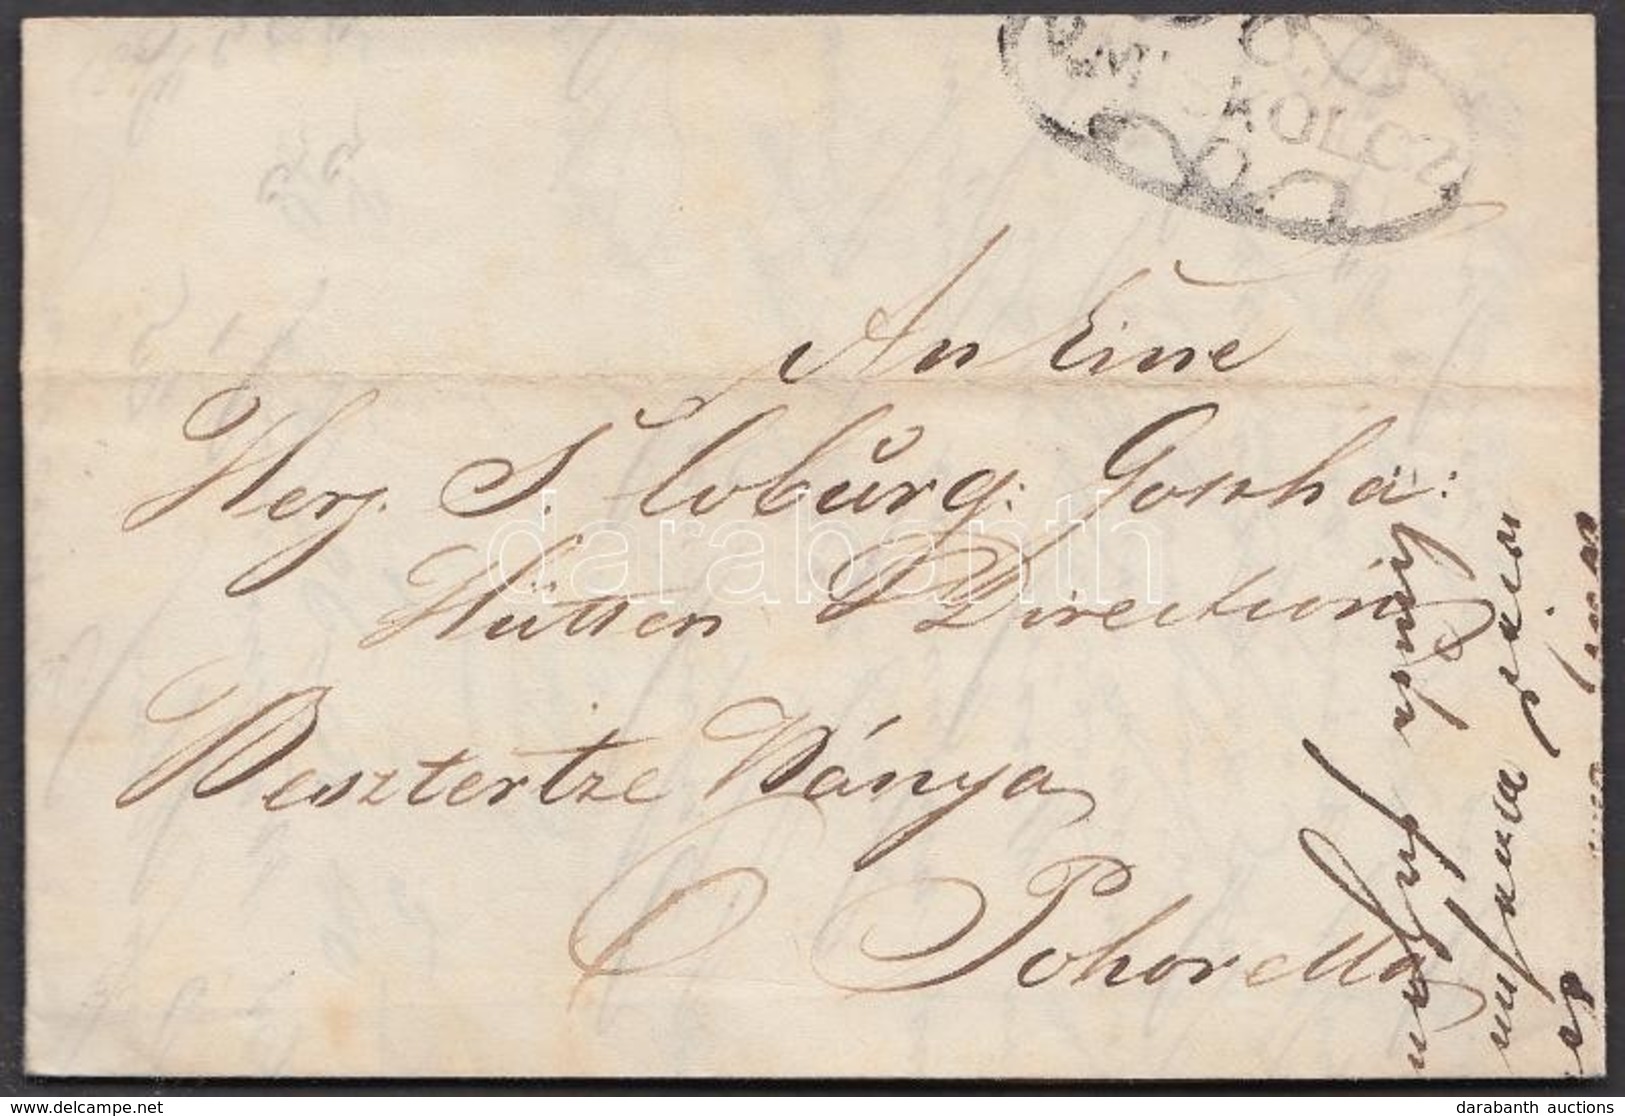 V. MISKOLCZ
An Eine
Herz. S. Coburg: Gotha:
Hütten Direction
Besztertze Bánya
Pohorella
darabanth
darabanth auctions